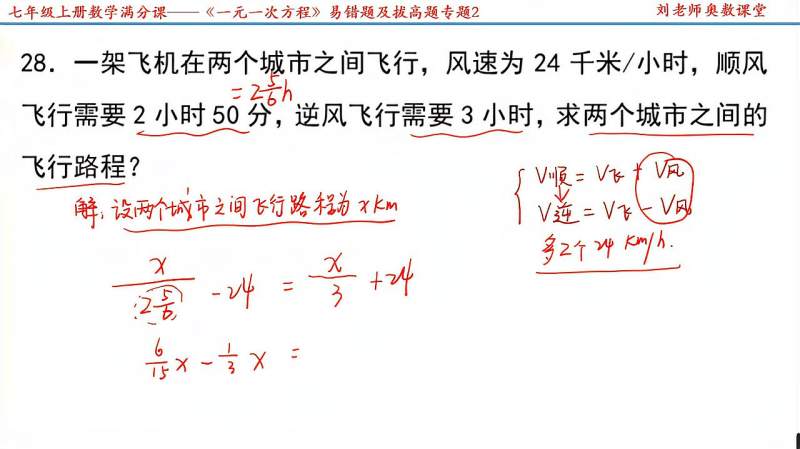 七年级上册数学满分课——《一元一次方程》易错题及拔高题专题2
刘老师奥数课堂
28．一架飞机在两个城市之间飞行，风速为 24 千米/小时，顺风
= 2 5/6 h
飞行需要 2 小时 50 分，逆风飞行需要 3 小时，求两个城市之间的
飞行路程？
解：设两个城市之间飞行路程为 x km
x/(2 5/6) - 24 = x/3 + 24
6/15 x - 1/3 x =
V顺 = V飞 + V风
V逆 = V飞 - V风
多2个24 km/h.